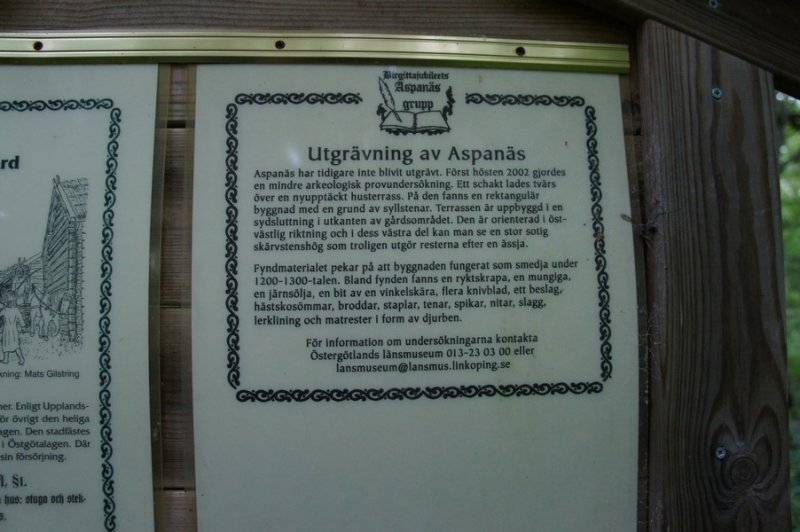 rd
kning: Mats Gilstring
ner. Enligt Upplands-
ör övrigt den heliga
agen. Den stadfästes
i Östgötalagen. Där
sin försörjning.
§1.
hus: stuga och stek-
Birgittajubileets
Aspanäs
grupp
Utgrävning av Aspanäs
Aspanäs har tidigare inte blivit utgrävt. Först hösten 2002 gjordes
en mindre arkeologisk provundersökning. Ett schakt lades tvärs
över en nyupptäckt husterrass. På den fanns en rektangulär
byggnad med en grund av syllstenar. Terrassen är uppbyggd i en
sydsluttning i utkanten av gårdsområdet. Den är orienterad i öst-
västlig riktning och i dess västra del kan man se en stor sotig
skärvstenshög som troligen utgör resterna efter en ässja.
Fyndmaterialet pekar på att byggnaden fungerat som smedja under
1200-1300-talen. Bland fynden fanns en ryktskrapa, en mungiga,
en järnsölja, en bit av en vinkelskära, flera knivblad, ett beslag,
hästskosömmar, broddar, staplar, tenar, spikar, nitar, slagg,
lerklining och matrester i form av djurben.
För information om undersökningarna kontakta
Östergötlands länsmuseum 013-23 03 00 eller
lansmuseum@lansmus.linkoping.se